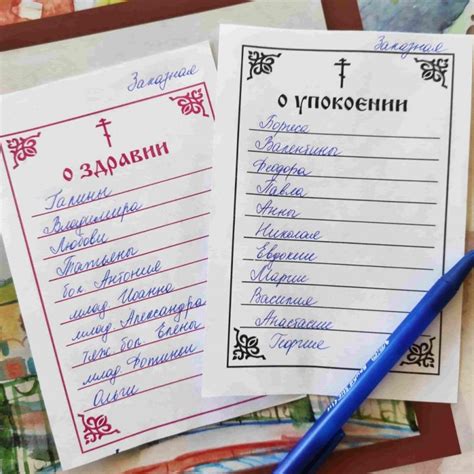 Заказная
О ЗДРАВИИ
Галины
Владимира
Любови
Татьяны
бол. Антония
млад. Иоанна
млад. Александра
тяж. бол. Елены
млад. Фотинии
Ольги
Заказная
О УПОКОЕНИИ
Бориса
Валентины
Феодора
Павла
Анны
Николая
Евдокии
Марии
Василия
Анастасии
Георгия